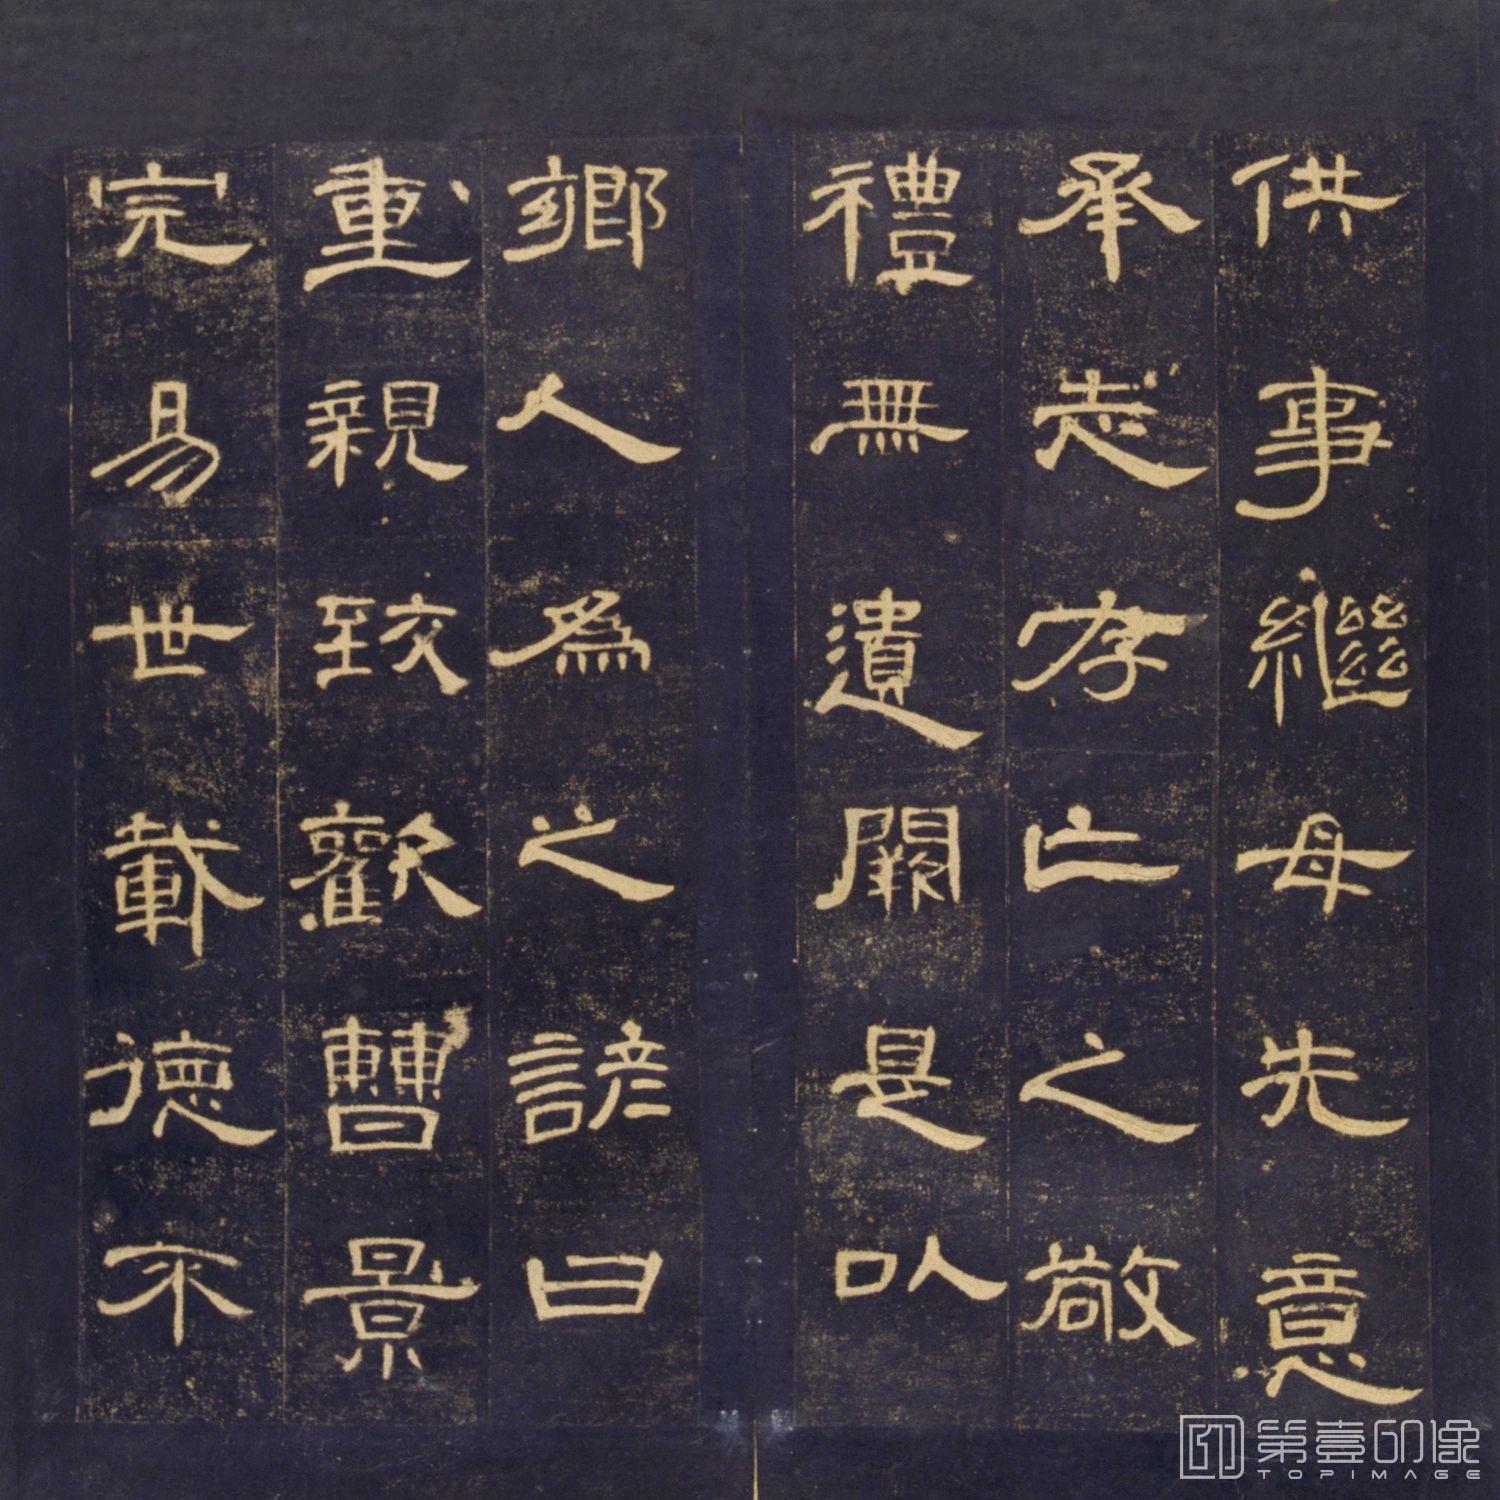 供事繼母先意
承志存亡之敬
禮無遺闕是以
鄉人為之諺曰
重親致歡曹景
完易世載德不
第壹印像
TOPIMAGE